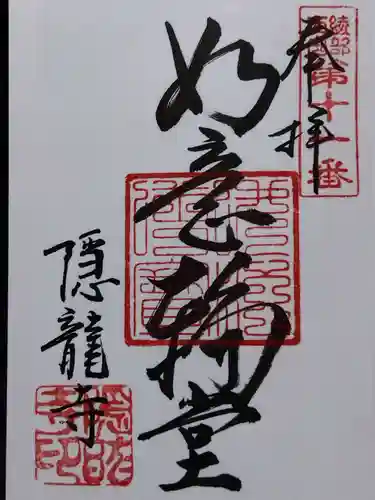 綾部
第十一番
奉拝
如意輪堂
隠龍寺